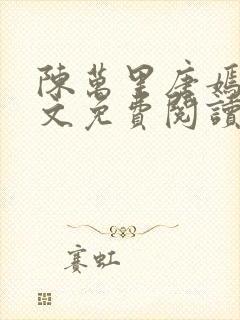 陳萬里唐嫣
文免費閱讀
賽虹